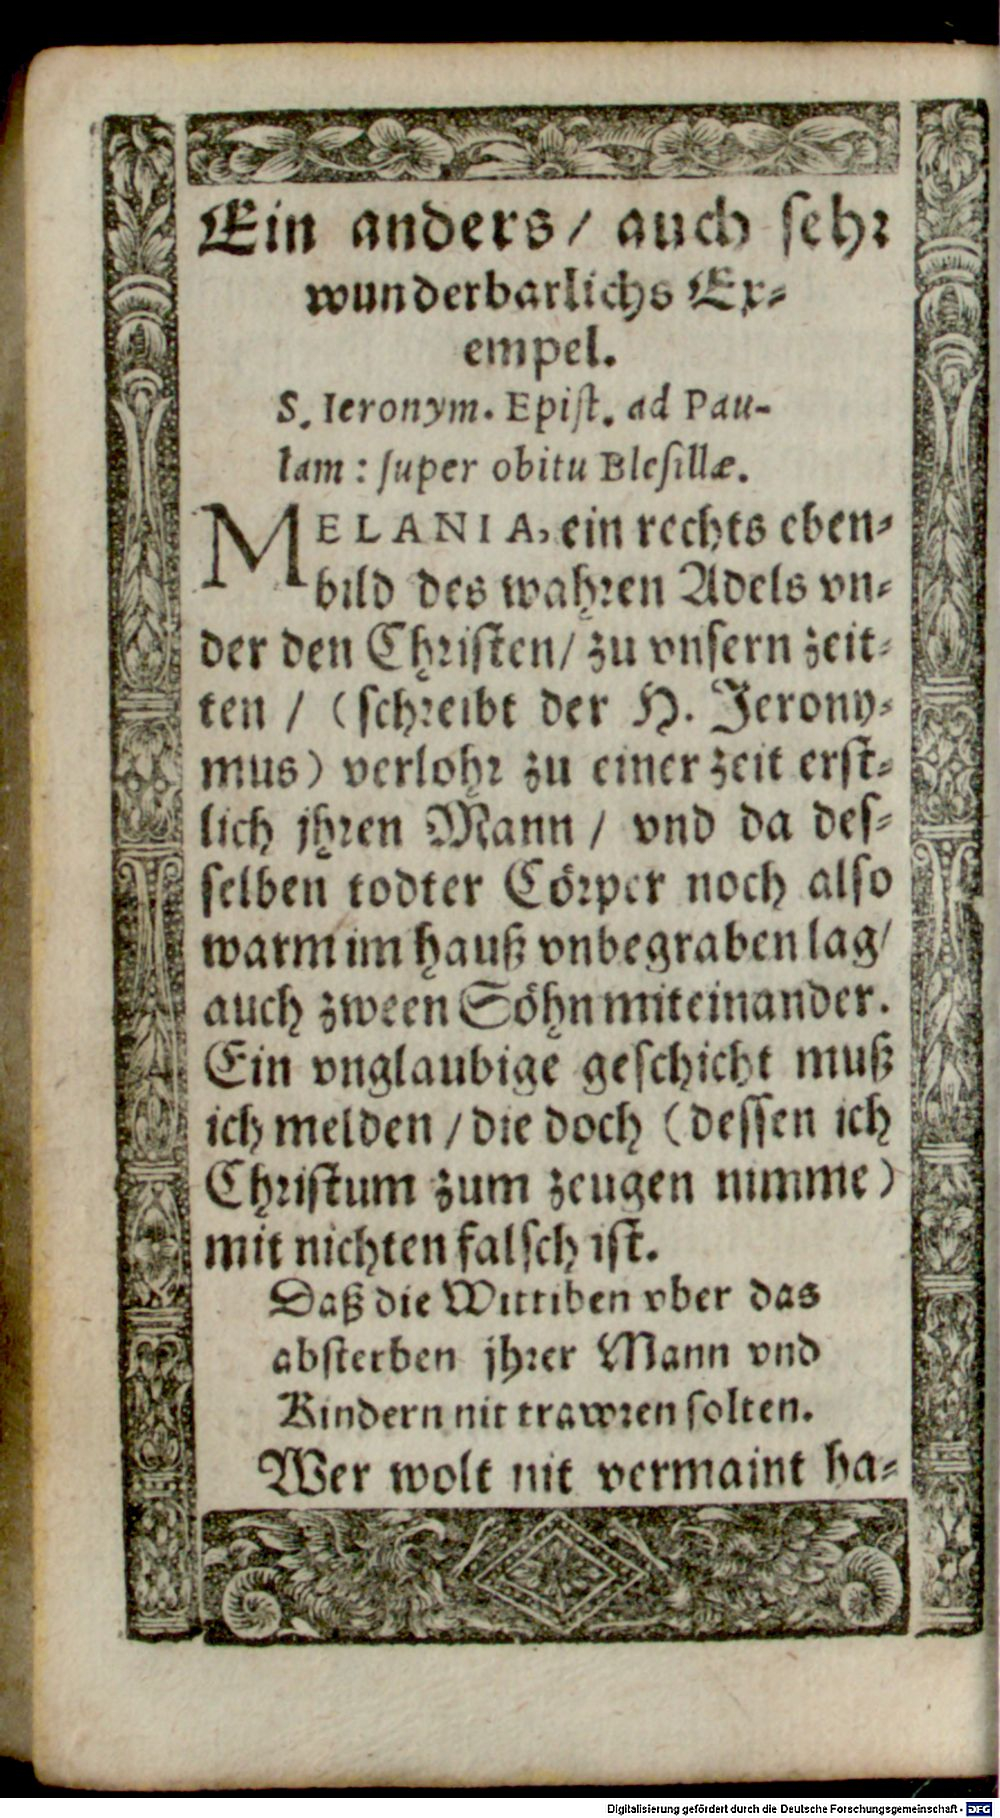 Ein anders / auch sehr
wunderbarlichs Ex-
empel.
S. Ieronym. Epist. ad Pau-
lam : super obitu Blesillæ.
MELANIA, ein rechts eben-
bild des wahren Adels vn-
der den Christen / zu vnsern zeit-
ten / (schreibt der H. Jerony-
mus) verlohr zu einer zeit erst-
lich jhren Mann / vnd da des-
selben todter Cörper noch also
warm im hauß vnbegraben lag /
auch zween Söhn miteinander.
Ein vnglaubige geschicht muß
ich melden / die doch (dessen ich
Christum zum zeugen nimme)
mit nichten falsch ist.
Daß die Wittiben vber das
absterben jhrer Mann vnd
Kindern nit trawren solten.
Wer wolt nit vermaint ha-
Digitalisierung gefördert durch die Deutsche Forschungsgemeinschaft - DFG